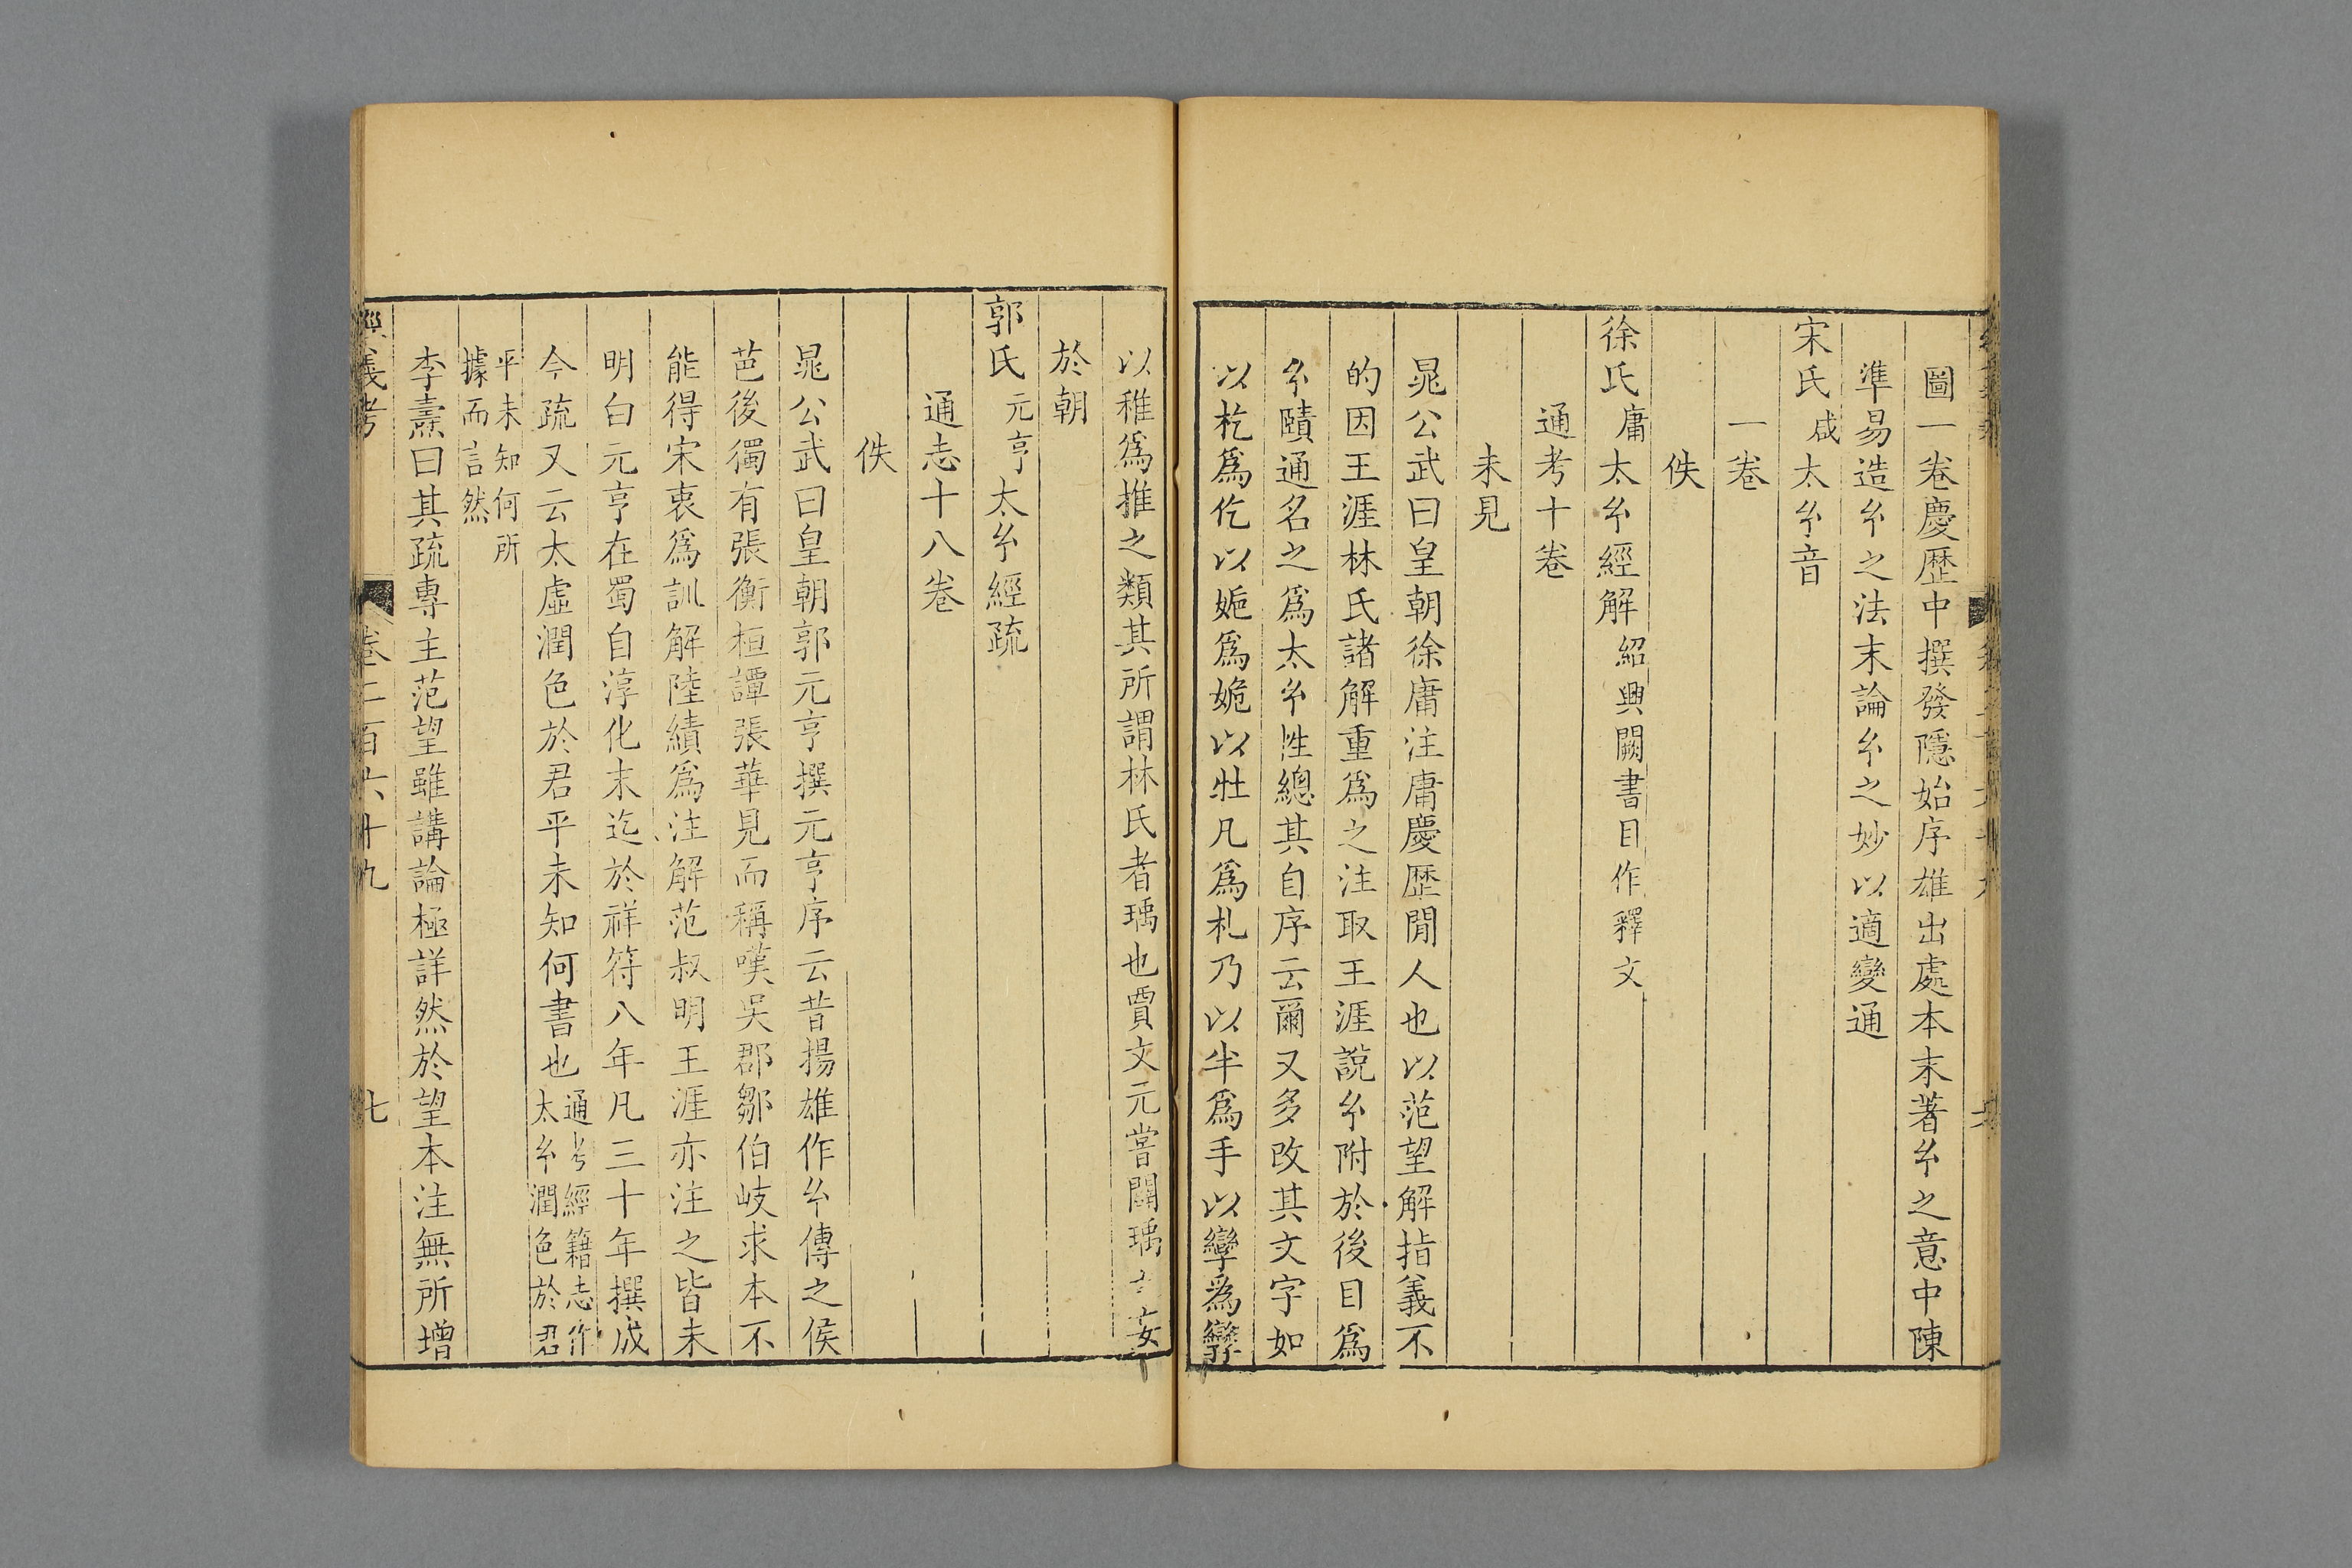 圖一卷慶歴中撰發隱始序雄出處本末著𤣥之意中陳
準易造𤣥之法末論𤣥之妙以適變通
宋氏咸太𤣥音
一卷
佚
徐氏庸太𤣥經解紹興闕書目作釋文
通考十卷
未見
晁公武曰皇朝徐庸注庸慶歴閒人也以范望解指義不
的因王涯林氏諸解重爲之注取王涯說𤣥附於後目爲
𤣥賾通名之爲太𤣥性總其自序云爾又多改其文字如
以杚爲仡以婮爲姽以壯凡爲札乃以半爲手以孿爲㜻
以稚爲推之類其所謂林氏者瑀也賈文元嘗闢瑀之妄
於朝
郭氏元亨太𤣥經疏
通志十八卷
佚
晁公武曰皇朝郭元亨撰元亨序云昔揚雄作𤣥傳之侯
芭後獨有張衡桓譚張華見而稱嘆吳郡鄒伯岐求本不
能得宋衷爲訓解陸績爲注解范叔明王涯亦注之皆未
明白元亨在蜀自淳化末迄於祥符八年凡三十年撰成
今疏又云太虛潤色於君平未知何書也通考經籍志作
太𤣥潤色於君
平未知何所
據而言然
李燾曰其疏專主范望雖講論極詳然於望本注無所增
經義考 卷二百六十九 七